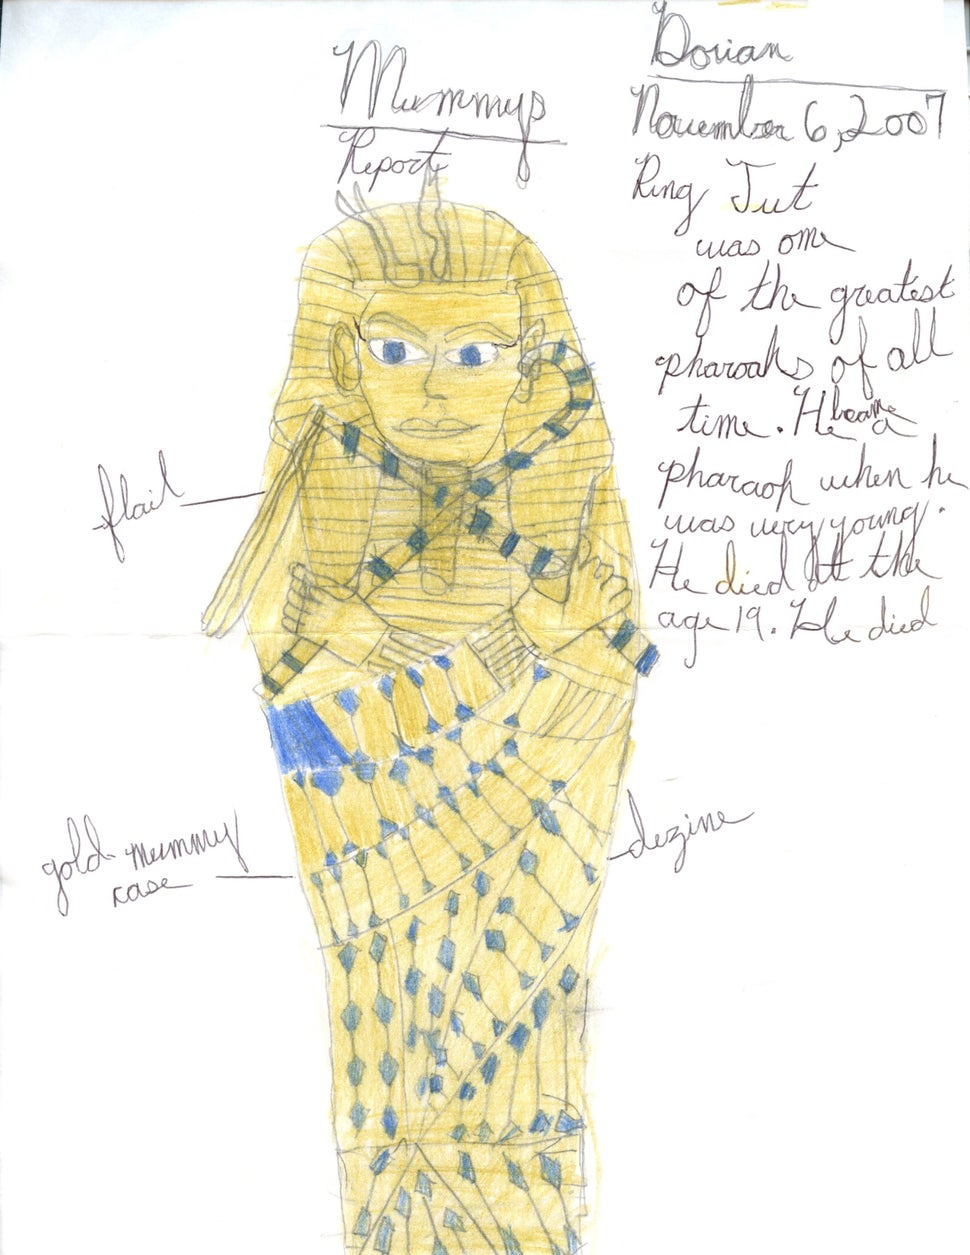 Mummys
Report
Dorian
November 6, 2007
King Tut
was one
of the greatest
pharoahs of all
time. He became a
pharaoh when he
was very young.
He died at the
age 19. He died
flail
gold mummy
case
dezine